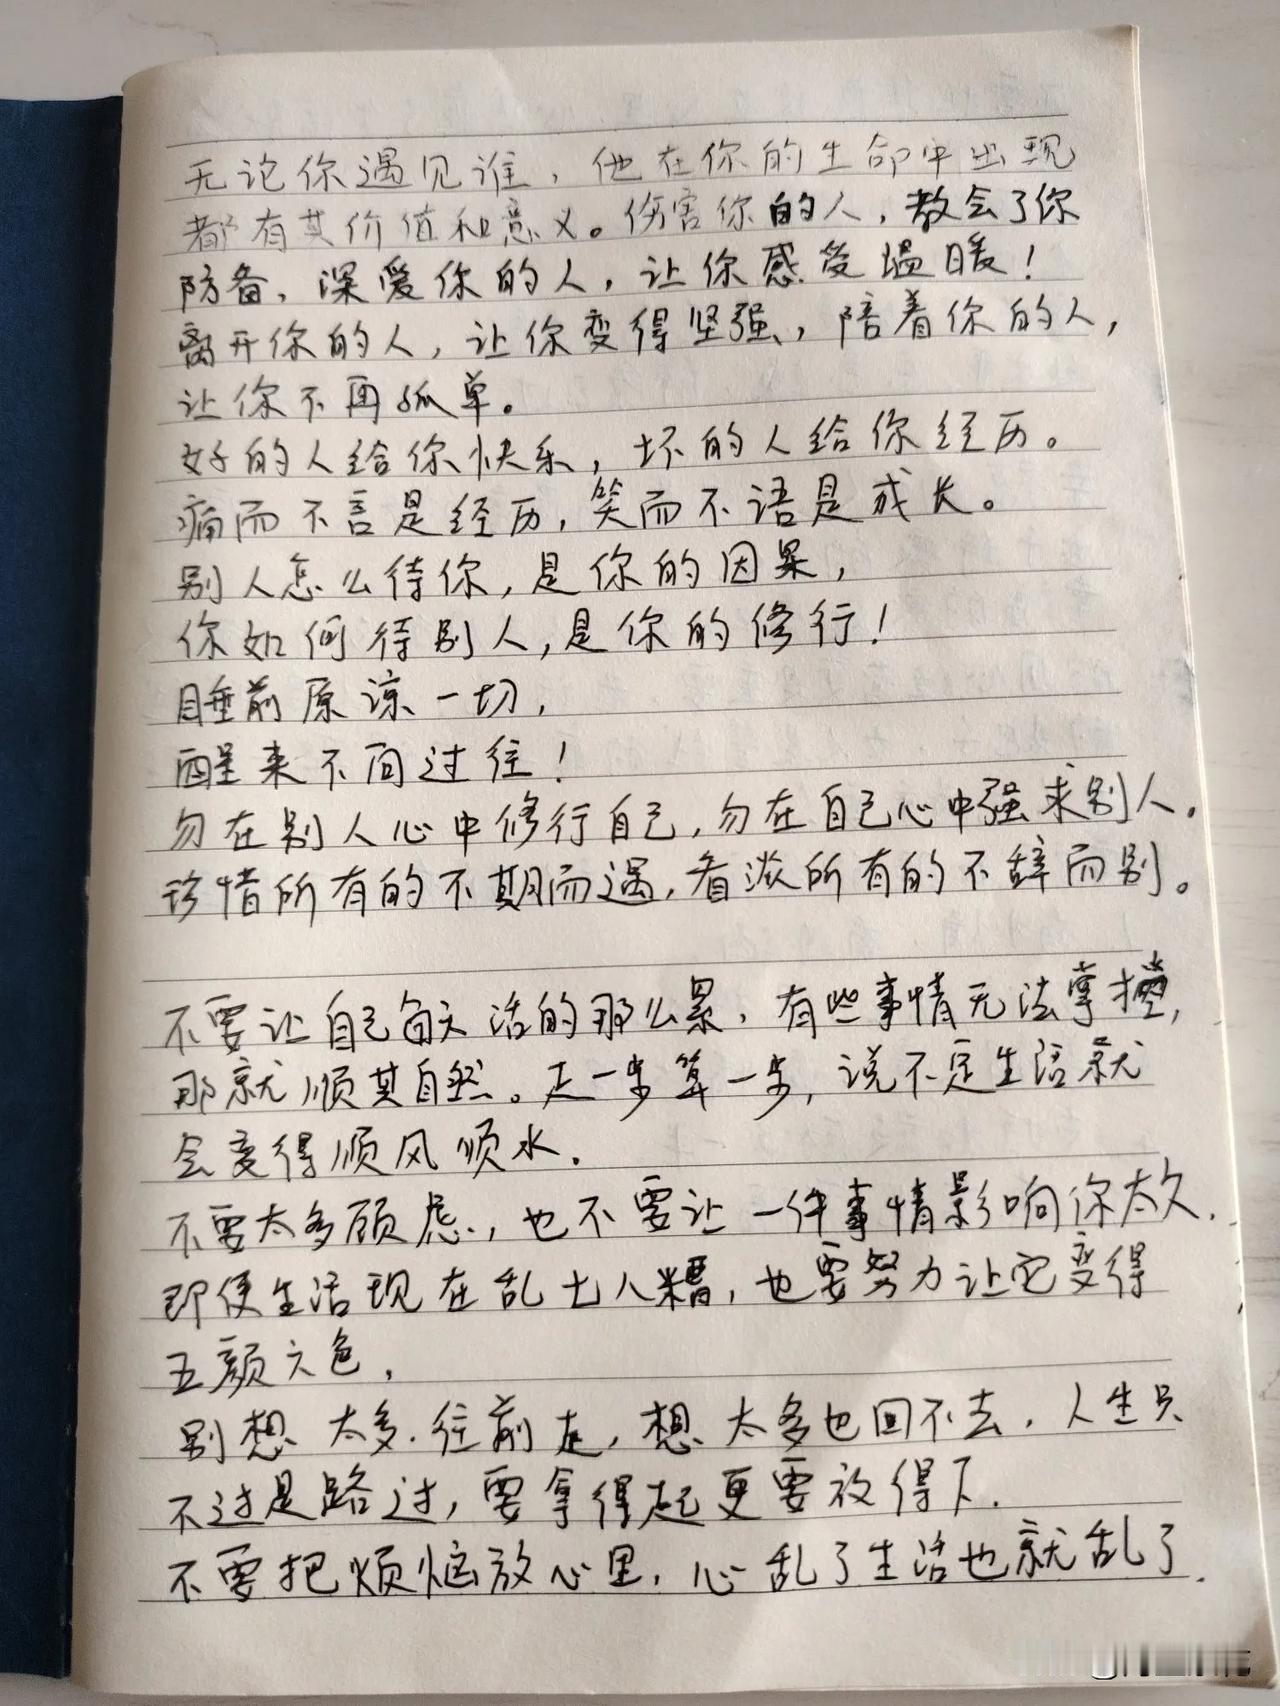 无论你遇见谁，他在你的生命中出现
都有其价值和意义。伤害你的人，教会了你
防备，深爱你的人，让你感受温暖！
离开你的人，让你变得坚强，陪着你的人，
让你不再孤单。
好的人给你快乐，坏的人给你经历。
痛而不言是经历，笑而不语是成长。
别人怎么待你，是你的因果，
你如何待别人，是你的修行！
睡前原谅一切，
醒来不问过往！
勿在别人心中修行自己，勿在自己心中强求别人。
珍惜所有的不期而遇，看淡所有的不辞而别。
不要让自己每天活的那么累，有些事情无法掌控，
那就顺其自然。走一步算一步，说不定生活就
会变得顺风顺水。
不要太多顾虑，也不要让一件事情影响你太久，
即使生活现在乱七八糟，也要努力让它变得
五颜六色，
别想太多，往前走，想太多也回不去，人生只
不过是路过，要拿得起更要放得下，
不要把烦恼放心里，心乱了生活也就乱了，